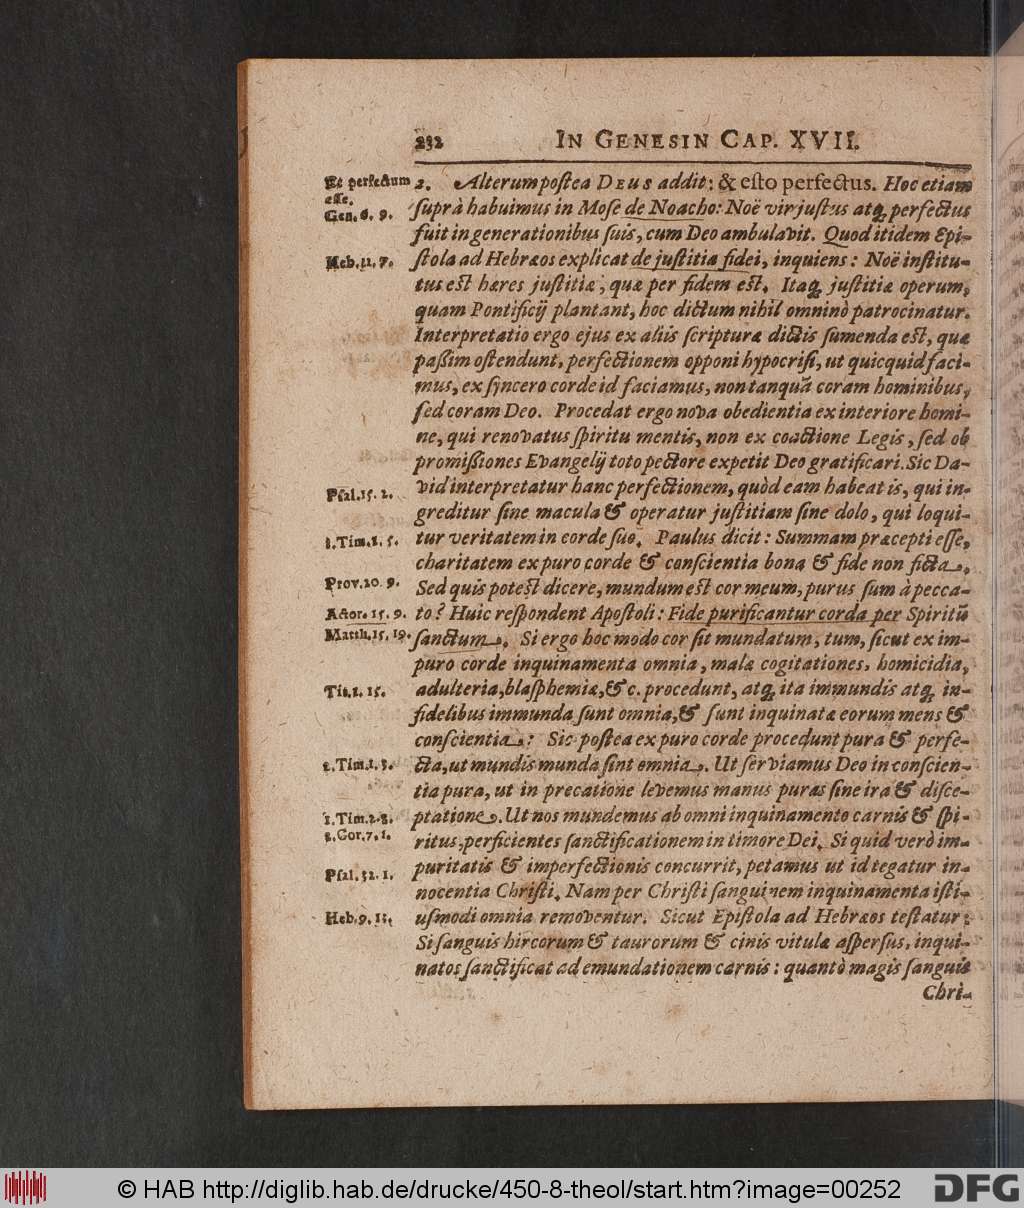 232 IN GENESIN CAP. XVII.
Et perfectum
esse.
Gen. 6. 9.
Heb. 11. 7.
Psal. 15. 2.
1. Tim. 1. 5.
Prov. 20. 9.
Actor. 15. 9.
Matth. 15. 19.
Tit. 1. 15.
2. Tim. 1. 3.
1. Tim. 2. 8.
2. Cor. 7. 1.
Psal. 32. 1.
Heb. 9. 13.
2. Alterum postea DEUS addit: & eſto perfectus. Hoc etiam
ſuprà habuimus in Moſe de Noacho: Noë vir juſtus atq; perfectus
fuit in generationibus ſuis, cum Deo ambulavit. Quod itidem Epi-
ſtola ad Hebræos explicat de juſtitia fidei, inquiens: Noë inſtitu-
tus eſt hæres juſtitiæ, quæ per fidem eſt. Itaq; juſtitiæ operum,
quam Pontificij plantant, hoc dictum nihil omninò patrocinatur.
Interpretatio ergo ejus ex aliis ſcripturæ dictis ſumenda eſt, quæ
paſſim oſtendunt, perfectionem opponi hypocriſi, ut quicquid faci-
mus, ex ſyncero corde id faciamus, non tanquā coram hominibus,
ſed coram Deo. Procedat ergo nova obedientia ex interiore homi-
ne, qui renovatus ſpiritu mentis, non ex coactione Legis, ſed ob
promiſſiones Evangelij toto pectore expetit Deo gratificari. Sic Da-
vid interpretatur hanc perfectionem, quòd eam habeat is, qui in-
greditur ſine macula & operatur juſtitiam ſine dolo, qui loqui-
tur veritatem in corde ſuo. Paulus dicit: Summam præcepti eſſe,
charitatem ex puro corde & conſcientia bona & fide non ficta.
Sed quis poteſt dicere, mundum eſt cor meum, purus ſum à pecca-
to? Huic reſpondent Apoſtoli: Fide purificantur corda per Spiritū
ſanctum. Si ergo hoc modo cor ſit mundatum, tum, ſicut ex im-
puro corde inquinamenta omnia, malæ cogitationes, homicidia,
adulteria, blaſphemiæ, &c. procedunt, atq; ita immundis atq; in-
fidelibus immunda ſunt omnia, & ſunt inquinatæ eorum mens &
conſcientia: Sic poſtea ex puro corde procedunt pura & perfe-
cta, ut mundis munda ſint omnia. Ut ſerviamus Deo in conſcien-
tia pura, ut in precatione levemus manus puras ſine ira & diſce-
ptatione. Ut nos mundemus ab omni inquinamento carnis & ſpi-
ritus, perficientes ſanctificationem in timore Dei. Si quid verò im-
puritatis & imperfectionis concurrit, petamus ut id tegatur in-
nocentia Chriſti. Nam per Chriſti ſanguinem inquinamenta iſti-
uſmodi omnia removentur. Sicut Epiſtola ad Hebræos teſtatur:
Si ſanguis hircorum & taurorum & cinis vitulæ aſperſus, inqui-
natos ſanctificat ad emundationem carnis: quantò magis ſanguis
Chri-
© HAB http://diglib.hab.de/drucke/450-8-theol/start.htm?image=00252
DFG